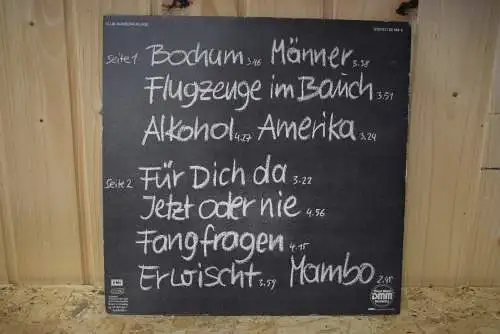 CLUB-SONDERAUFLAGE
Seite 1 Bochum 3.46 Männer 3.38
Flugzeuge im Bauch 3.51
Alkohol 4.27 Amerika 3.24
Seite 2 Für Dich da 3.22
Jetzt oder nie 4.56
Fangfragen 4.15
Erwischt 3.59 Mambo 2.41
EMI
DMM